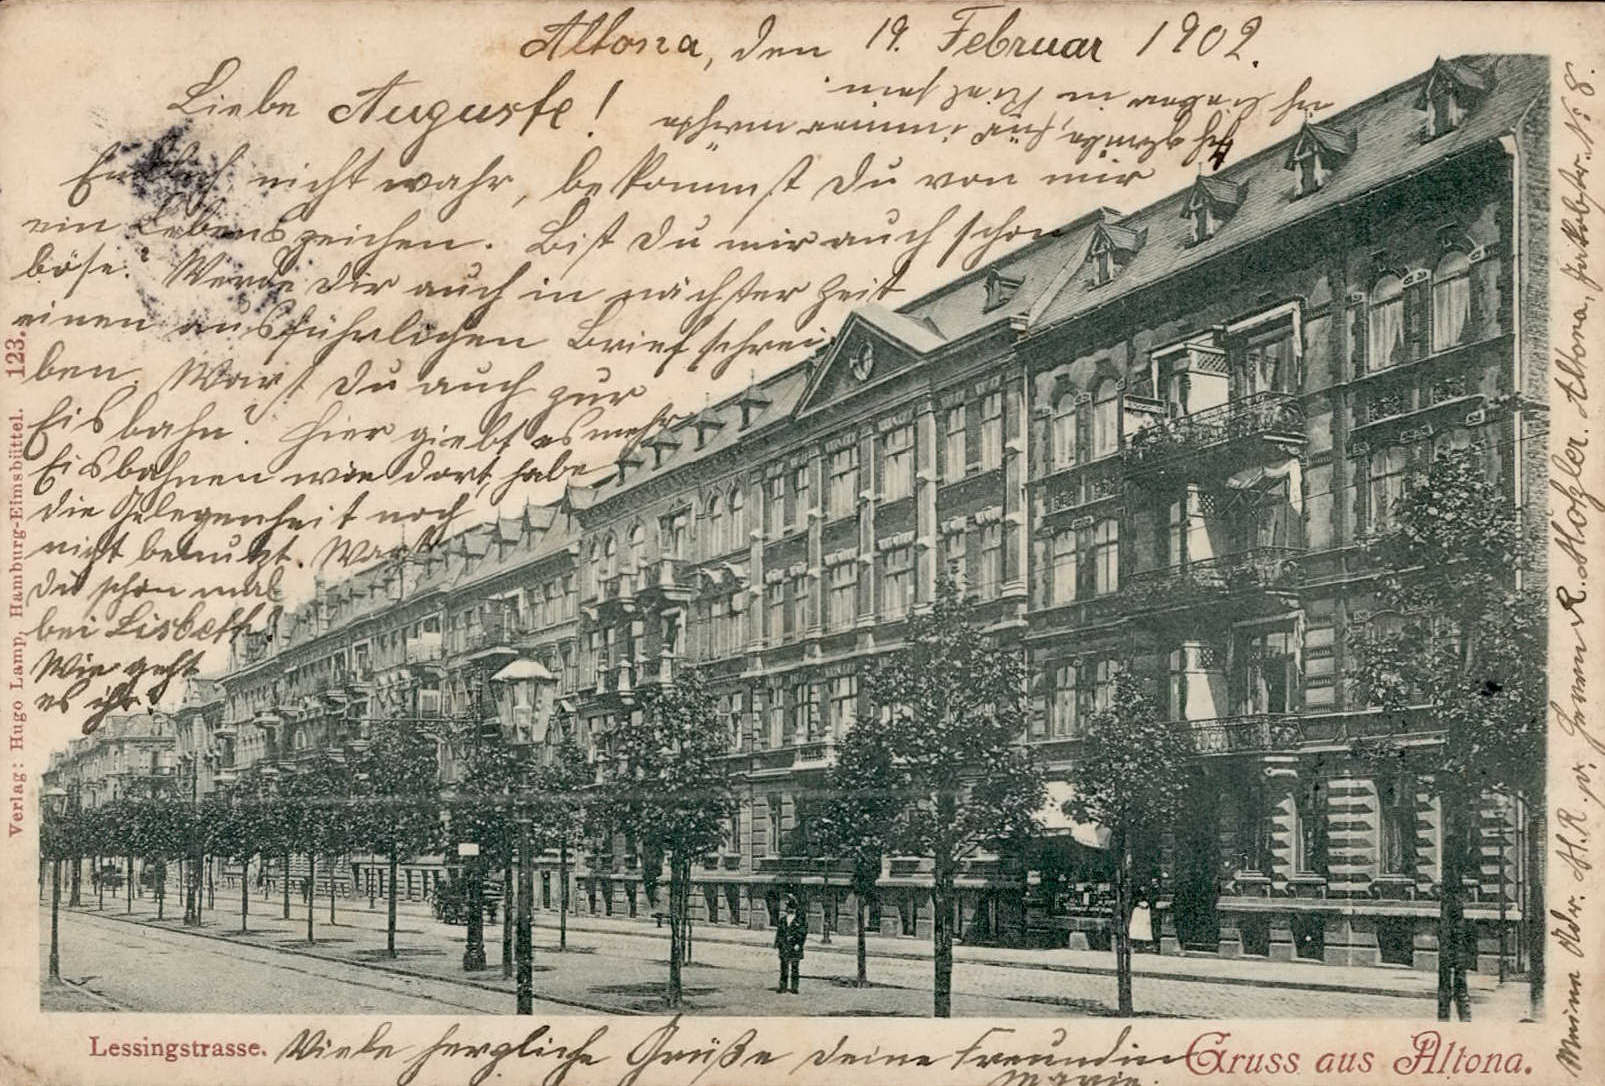 Altona, den 19. Februar 1902.
Liebe Auguste!
Endlich nicht wahr, bekommst Du von mir
ein Lebenszeichen. Bist Du mir auch schon
böse? Werde Dir auch in nächster Zeit
einen ausführlichen Brief schrei
ben. Warst Du auch zur
Eisbahn? Hier giebt es mehr
Eisbahnen wie dort, habe
die Gelegenheit noch
nicht benutzt. Warst
Du schon mal
bei Lisbeth?
Wie geht
es ihr?
Viele herzliche Grüße Deine Freundin
Marie.
Meine Adr. M.R. pr. Herrn R. Holzler. Altona, Jakobstr. N: 8.
Verlag: Hugo Lamp, Hamburg-Eimsbüttel. 123.
Lessingstrasse.
Gruss aus Altona.